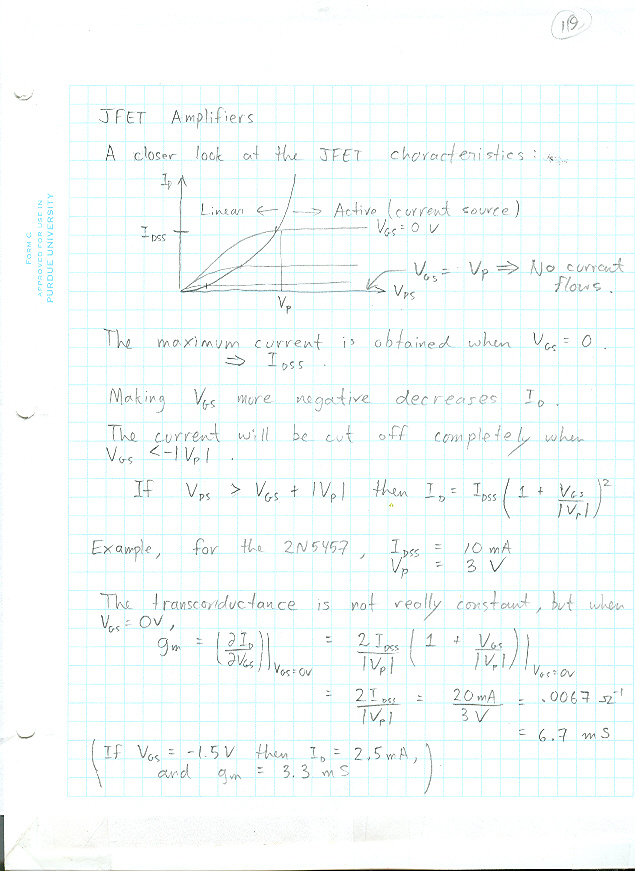 119
JFET Amplifiers
A closer look at the JFET characteristics:
I_D
Linear ← → Active (current source)
V_GS = 0 V
I_DSS
V_GS = - V_P ⇒ No current flows.
V_DS
V_P
The maximum current is obtained when V_GS = 0.
⇒ I_DSS.
Making V_GS more negative decreases I_D.
The current will be cut off completely when
V_GS < -|V_P|.
If V_DS > V_GS + |V_P| then I_D = I_DSS (1 + V_GS/|V_P|)²
Example, for the 2N5457, I_DSS = 10 mA
V_P = 3 V
The transconductance is not really constant, but when
V_GS = 0V,
g_m = (∂I_D/∂V_GS)|V_GS=0V = 2 I_DSS/|V_P| (1 + V_GS/|V_P|)|V_GS=0V
= 2 I_DSS/|V_P| = 20mA/3V = .0067 Ω⁻¹
= 6.7 mS
(If V_GS = -1.5V then I_D = 2.5mA,
and g_m = 3.3 mS)
FORM C
APPROVED FOR USE IN
PURDUE UNIVERSITY